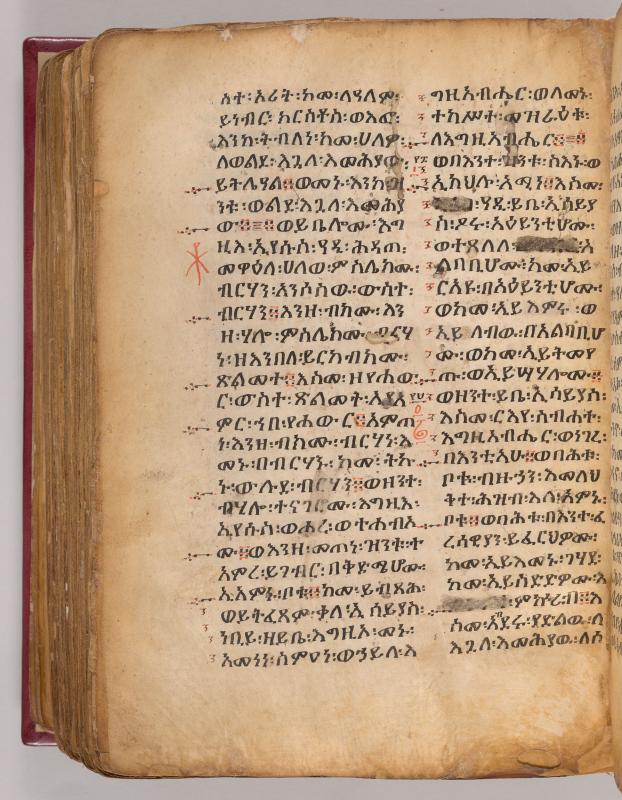 ስተ፡ኦሪት፡ከመ፡ለዓለም፡
ይነብር፡ክርስቶስ፡ወእፎ፡
እንከ፡ትብለነ፡ከመ፡ሀለዎ፡
ለወልደ፡እጓለ፡እመሕያው፡
ይትሌዓል፡፡ወመኑ፡እንከ፡ዝ
ንቱ፡ወልደ፡እጓለ፡እመሕያ
ው፡፡ወይቤሎሙ፡እግ
ዚእ፡ኢየሱስ፡ዓዲ፡ሕዳጠ፡
መዋዕለ፡ሀለወ፡ምስሌክሙ፡
ብርሃን፡አንሶስው፡ውስተ፡
ብርሃን፡፡እንዘ፡ብክሙ፡እን
ዘ፡ሃሎ፡ምስሌክሙ፡ብርሃ
ን፡ዘእንበለ፡ይርከብክሙ፡
ጽልመት፡፡እስመ፡ዘየሐው
ር፡ውስተ፡ጽልመት፡ኢያአ
ምር፡ኀበ፡የሐውር፡፡እምጠ
ነ፡እንዘ፡ብክሙ፡ብርሃን፡እ
መኑ፡በብርሃን፡ከመ፡ትኩ
ኑ፡ውሉደ፡ብርሃን፡፡ወዘንተ፡
ብሂሎ፡ተናገሮሙ፡እግዚእ፡
ኢየሱስ፡ወሖረ፡ወተኀብአ
ሙ፡፡ወእንዘ፡መጠነ፡ዝንቱ፡ተ
አምረ፡ይገብር፡በቅድሜሆሙ፡
ኢአምኑ፡ቦቱ፡፡ከመ፡ይብጻሕ፡
ወይትፈጸም፡ቃለ፡ኢሳይያስ፡
ነቢይ፡ዘይቤ፡እግዚኦ፡መኑ፡
አመነነ፡ስምዐነ፡ወኃይለ፡እ
ግዚአብሔር፡ወለመኑ፡
ተከሥተ፡መዝራዕቱ፡
ለእግዚአብሔር፡፡
ወበእንተ፡ዝንቱ፡ስእኑ፡ወ
ኢክህሉ፡አሚን፡፡እስመ፡
ዓዲ፡ይቤ፡ኢሳይያ
ስ፡ዖሩ፡አዕይንቲሆሙ፡
ወተጸለለ፡አ
ልባቢሆሙ፡ከመ፡ኢይ
ርአዩ፡በአዕይንቲሆሙ፡
ወከመ፡ኢይእምሩ፡ወ
ኢይለብዉ፡በአልባቢሆ
ሙ፡ወከመ፡ኢይትመየ
ጡ፡ወኢይሣሃሎሙ፡፡
ወዘንተ፡ይቤ፡ኢሳይያስ፡
እስመ፡ርእየ፡ስብሐተ፡
እግዚአብሔር፡ወነገረ፡
በእንቲአሁ፡፡ወበሕቱ፡
ቦቱ፡ብዙኃን፡እመለህ
ቅተ፡ሕዝብ፡እለ፡አምኑ፡
ቦቱ፡፡ወባሕቱ፡በእንተ፡ፈ
ሪሳዊያን፡ይፈርህዎሙ፡
ከመ፡ኢይእመኑ፡ገሃደ፡
ከመ፡ኢይስድድዎሙ፡እ
ምኵራብ፡፡እ
ስመ፡አደሩ፡ያድልዉ፡ለ
እጓለ፡እመሕያዉ፡ለስ